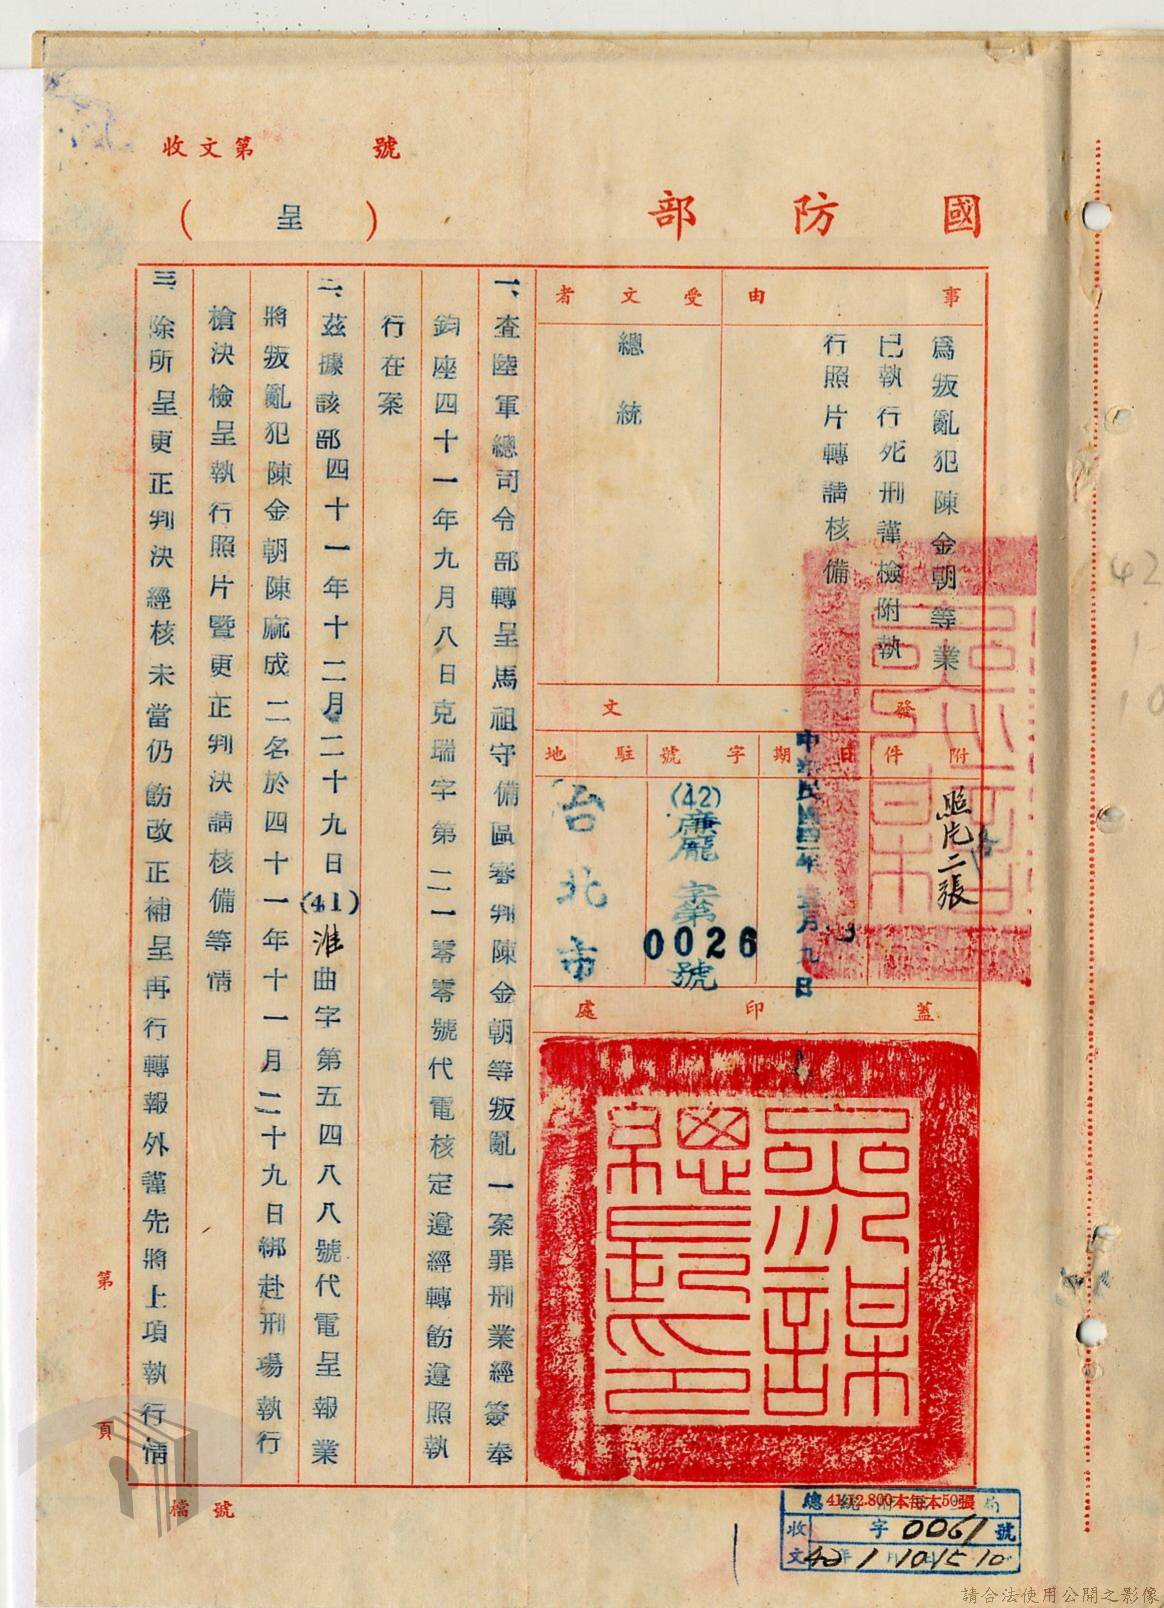 收文第　號
國防部
（呈）
事由
為叛亂犯陳金朝等業
已執行死刑謹檢附執
行照片轉請核備
受文者
總統
發文
附件
照片二張
日期
中華民國四二年元月九日
字號
(42)廉龐字第0026號
駐地
台北市
蓋印處
參謀
總長印
一、查陸軍總司令部轉呈馬祖守備區審判陳金朝等叛亂一案罪刑業經簽奉
鈞座四十一年九月八日克瑞字第二一零零號代電核定遵經轉飭遵照執
行在案
二、茲據該部四十一年十二月二十九日(41)淮曲字第五四八八號代電呈報業
將叛亂犯陳金朝陳龐成二名於四十一年十一月二十九日綁赴刑場執行
槍決檢呈執行照片暨更正判決請核備等情
三、除所呈更正判決經核未當仍飭改正補呈再行轉報外謹先將上項執行情
第　頁
檔號
41.12.800本每本50張
收文
字0061號
42年1月10日15 10
42
1
10
請合法使用公開之影像